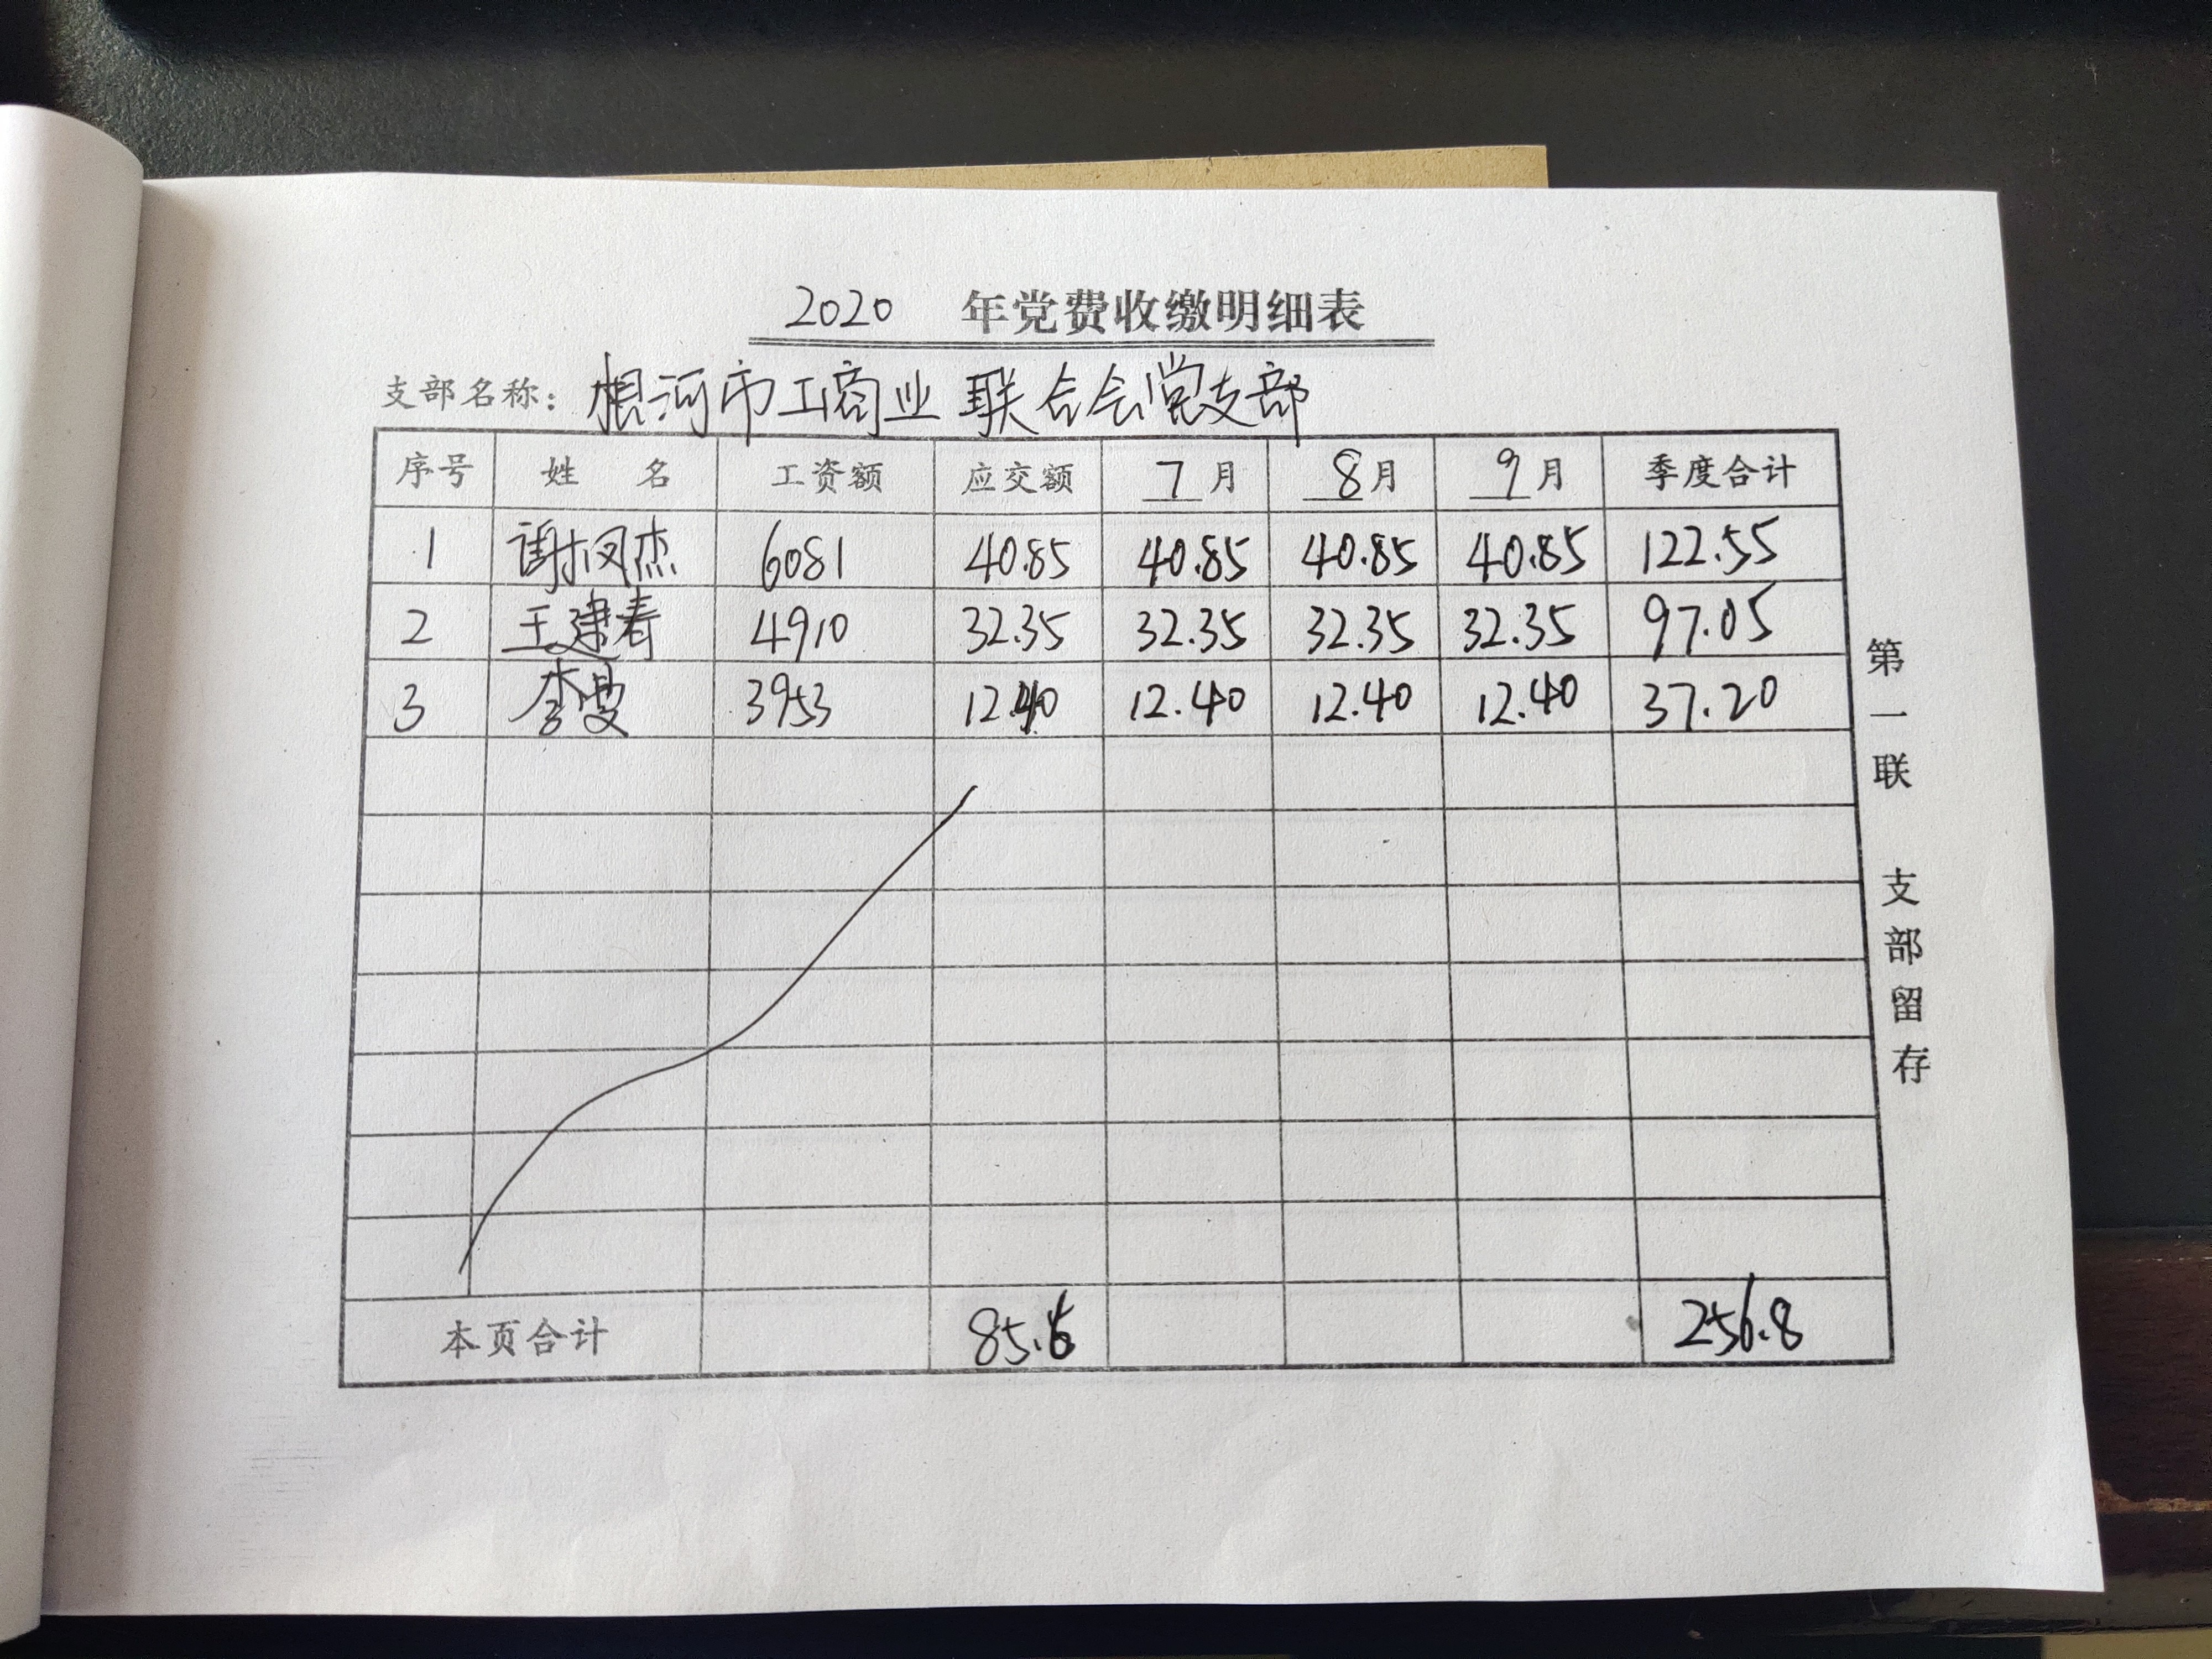 2020 年党费收缴明细表
支部名称：根河市工商业联合会党支部
序号 姓名 工资额 应交额 7月 8月 9月 季度合计
1 谢凤杰 6081 40.85 40.85 40.85 40.85 122.55
2 王建春 4910 32.35 32.35 32.35 32.35 97.05
3 李曼 3953 12.40 12.40 12.40 12.40 37.20
本页合计 85.6 256.8
第一联 支部留存